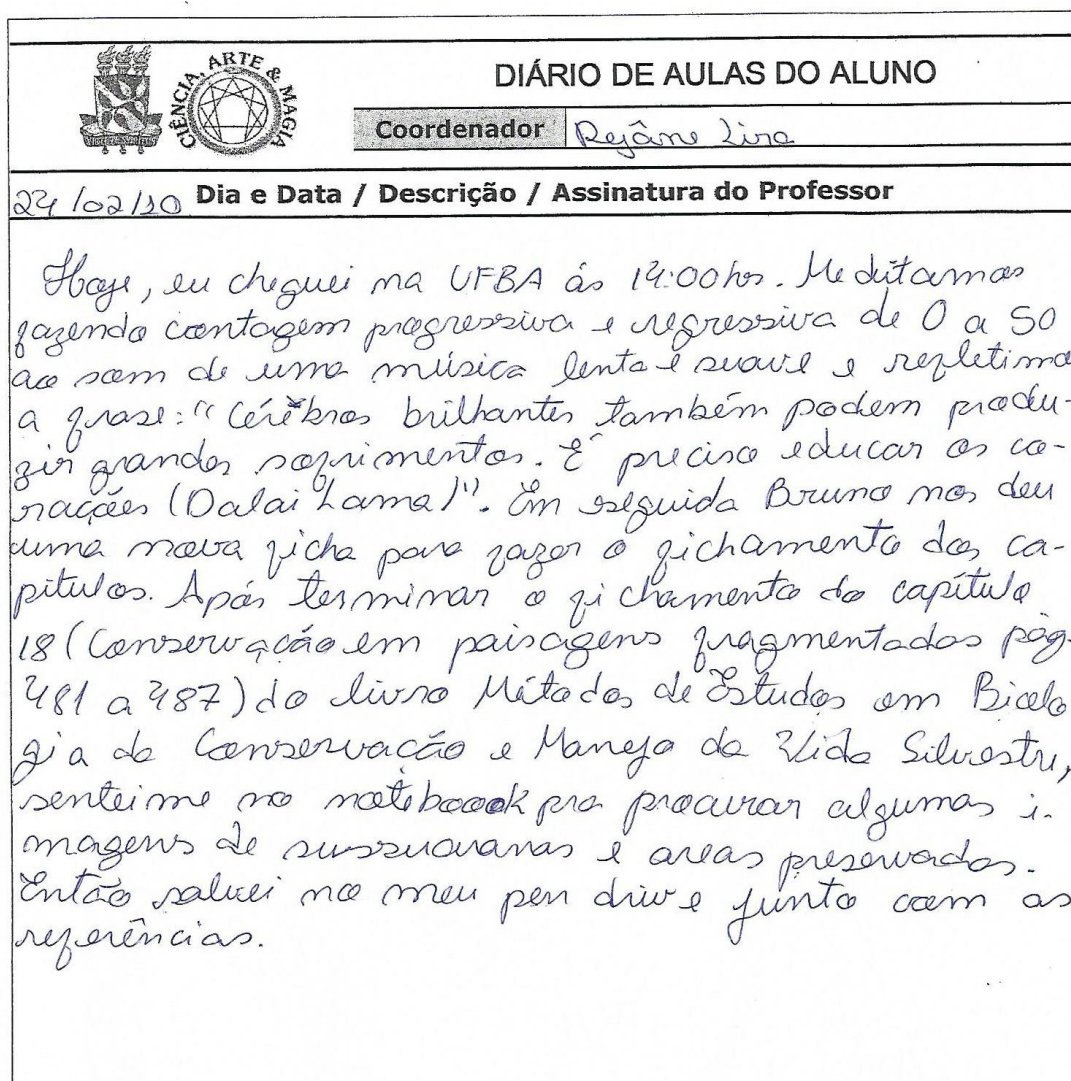 CIÊNCIA, ARTE & MAGIA
DIÁRIO DE AULAS DO ALUNO
Coordenador Rejâne Lira
24/02/10 Dia e Data / Descrição / Assinatura do Professor
Hoje, eu cheguei na UFBA ás 14:00hs. Meditamos
fazendo contagem progressiva e regressiva de 0 a 50
ao som de uma música lenta e suave e refletimo
a frase: "Cérebros brilhantes também podem produ-
zir grandes sofrimentos. É preciso educar os co-
rações (Dalai Lama)". Em seguida Bruno nos deu
uma nova ficha para fazer o fichamento dos ca-
pitulos. Após terminar o fichamento do capítulo
18 (Conservação em paisagens fragmentadas pág.
481 a 487) do livro Métodos de Estudos em Biolo
gia da Conservação e Manejo da Vida Silvestre,
senteime no notebook pra procurar algumas i-
magens de sussuaranas e areas preservadas.
Então salvei no meu pen drive junto com as
referências.